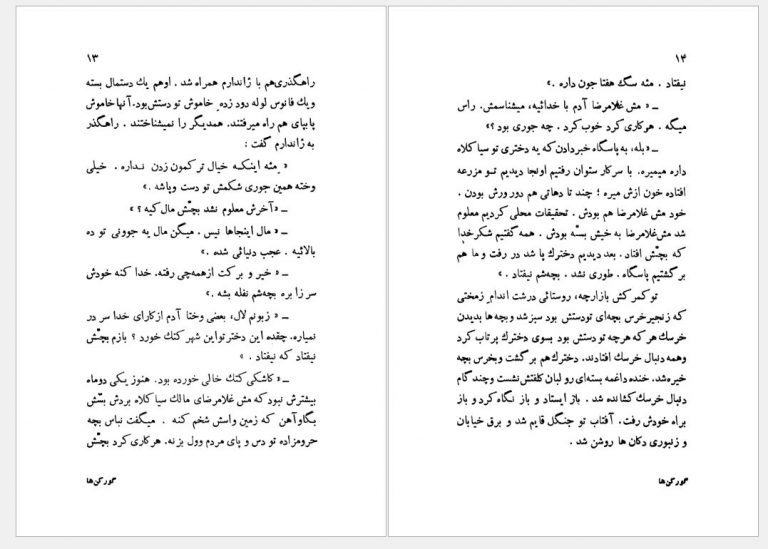 ۱۳
راهگذری‌هم با ژاندارم همراه شد . اوهم یك دستمال بسته
ویك فانوس لوله دود زده, خاموش تو دستش‌بود. آنها خاموش
پابپای هم راه میرفتند . همدیگر را نمیشناختند . راهگذر
به ژاندارم گفت :
« مثه اینکه خیال ترکمون زدن نداره . خیلی
وخته همین جوری شکمش تو دست وپاشه . »
ــ « آخرش معلوم نشد بچّش مال کیه ؟ »
ــ « مال اینجاها نیس . میگن مال یه جوونی تو ده
بالائیه . عجب دنیائی شده . »
ــ « خیر و برکت ازهمه‌چی رفته. خدا کنه خودش
سر زا بره بچه‌شم نفله بشه . »
ــ « زبونم لال، بعضی وختا آدم ازکارای خدا سر در
نمیاره. چقده این دختر تواین شهر کتك خورد ؟ بازم بچّش
نیفتاد که نیفتاد . »
ــ « کاشکی کتك خالی خورده بود. هنوز یکی دوماه
بیشترش نبود که مش غلامرضای مالك سیا کلاه بردش بسّش
بگاوآهن که زمین واسش شخم کنه . میگفت نباس بچه
حرومزاده تو دس و پای مردم وول بزنه. هرکاری کرد بچّش
گورکن‌ها
۱۴
نیفتاد . مثه سگ هفتا جون داره . »
ــ « مش غلامرضا آدم با خدائیه، میشناسمش. راس
میگه . هرکاری کرد خوب کرد . چه جوری بود ؟ »
ــ « بله، به پاسگاه خبردادن که یه دختری تو سیا کلاه
داره میمیره. با سرکار ستوان رفتیم اونجا دیدیم تو مزرعه
افتاده خون ازش میره ؛ چند تا دهاتی هم دور ورش بودن .
خود مش غلامرضا هم بودش . تحقیقات محلی کردیم معلوم
شد مش‌غلامرضا به خیش بسّه بودش . همه گفتیم شکرخدا
که بچّش افتاد . بعد دیدیم دخترك پا شد در رفت و ما هم
برگشتیم پاسگاه . طوری نشد . بچه‌شم نیفتاد . »
توکمرکش بازارچه، روستائی درشت اندام زمختی
که زنجیرخرس بچه‌ای تودستش بود سبزشد وبچه‌ها بدیدن
خرسك هر که هرچه تو دستش بود بسوی دخترك پرتاب کرد
وهمه دنبال خرسك افتادند. دخترك‌هم برگشت وبخرس بچه
خیره‌شد. خنده داغمه بسته‌ای رو لبان کلفتش نشست وچندگام
دنبال خرسك کشانده شد . باز ایستاد و باز نگاه کرد و باز
براه خودش رفت. آفتاب تو جنگل قایم شد و برق خیابان
و زنبوری دکان ها روشن شد .
گورکن‌ها